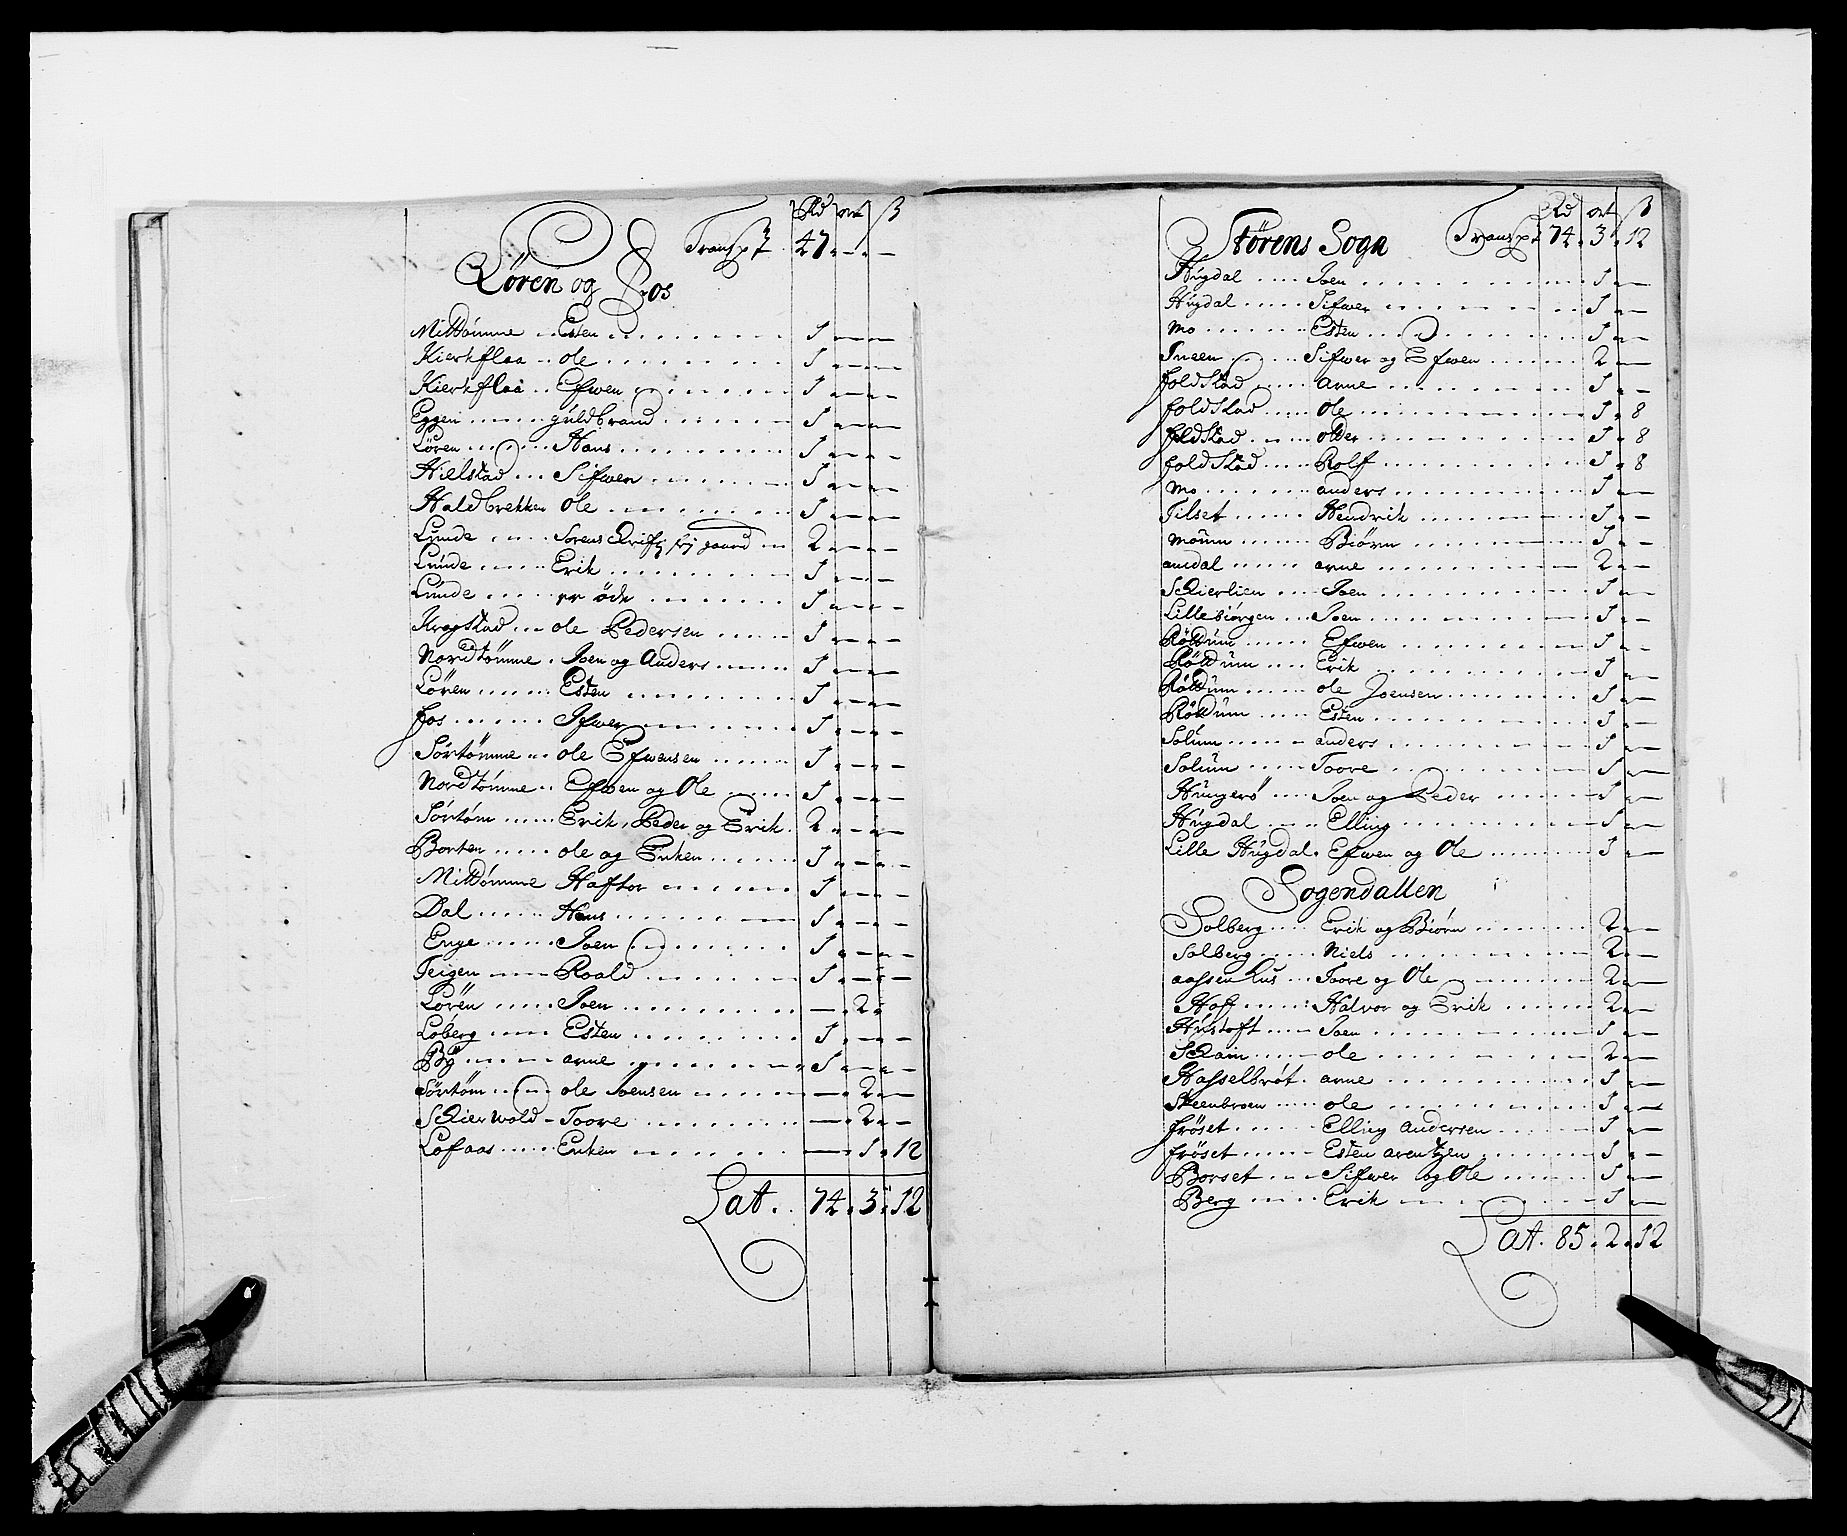 Rd ort ß
Transpt 47 . — . —
Løren og Fos
Mittømme .. Esten . . . . 1 . — . —
Kierkflaa .. ole . . . . 1 . — . —
Kierkflaa .. Efwen . . . . 1 . — . —
Eggen .... guldbrand . . . . 1 . — . —
Løren .... Hans . . . . 1 . — . —
Hielstad ... Sifwer . . . . 1 . — . —
Haldbrekken Ole . . . . 1 . — . —
Lunde .... Sorens frj gaard 2 . — . —
Lunde .... Erik . . . . 1 . — . —
Lunde .... er øde . . . . 1 . — . —
Krogstad ... ole Pedersen .... 1 . — . —
Nordtømme . Joen og Anders .... 1 . — . —
Løren .... Esten . . . . 1 . — . —
fos .... Ifwer . . . . 1 . — . —
Sørtømme .. ole Efwensen .... 1 . — . —
Nordtømme .. Efwen og Ole .... 1 . — . —
Sørtøm .... Erik, Peder og Erik. 2 . — . —
Borten .... ole og Enken .... 1 . — . —
Mittømme Haftor .... 1 . — . —
Dal .... Hans . . . . 1 . — . —
Enge .... Joen . . . . 1 . — . —
Teigen .... Roald . . . . 1 . — . —
Løren .... Joen . . . . — . 2 .
Løberg .... Esten . . . . 1 . — . —
By .... arne . . . . 1 . — . —
Sørtøm .... ole Joensen .... — . 2 . —
Skierwold – Toore .... — . 2 . —
Lofaas .... Enken .... — . 1 . 12
Lat. 74 . 3 . 12
Rd ort ß
Størens Sogn Transpt 74 . 3 . 12
Hugdal .... Joen .... 1 . —
Hugdal .... Sifwer .... 1 . —
Mo .... Esten .... 1 . —
Sneen .... Sifwer og Efwen .... 2 . —
foldstad .... arne .... 1 . —
foldstad .... Ole .... 1 . 8
foldstad .... older .... 1 . 8
foldstad .... Rolf .... 1 . 8
Mo .... anders .... 1 . —
Tilset .... Hendrik .... 1 . —
Moum .... Biørn .... 1 . —
amdal .... arne .... 2 . —
Skierlien .... Joen .... 1 . —
Lillebiørgen ... Joen .... 1 . —
Røttum .... Efwen .... 1 . —
Røttum .... Erik .... 1 . —
Røttum .... ole Joensen .... 1 . —
Røttum .... Esten .... 1 . —
Solum .... anders .... 1 . —
Solum .... Toore .... 1 . —
Hungerø .... Joen og Peder .... 1 . —
Hugdal .... Elling .... 1 . —
Lille Hugdal. Efwen og Ole .... 1 . —
Sogendallen
Solberg .... Erik og Biørn .... 2 . —
Solberg .... Niels .... 2 . —
aassenhus .. Toore og Ole .... 2 . —
Hoff .... Halvor og Erik .... 2 . —
Hustoft .... Joen .... 1 . —
.... ole .... 2 . —
Hasselbrøt . arne .... 1 . —
Steenbroen .... ole .... 1 . —
frøset .... Elling Andersen .... 1 . —
frøset .... Esten arentzen .... 1 . —
Borset .... Sifwer og Ole .... 1 . —
Berg .... Erik .... 1 . —
Lat. 85 . 2 . 12